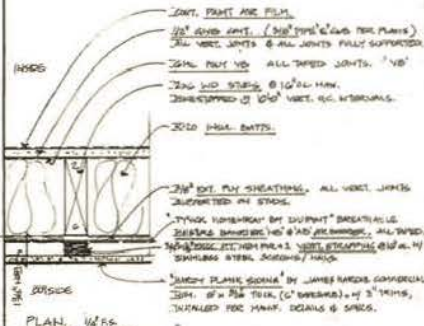 CONT. PAINT AIR FILM.
1/2" GWB CONT. (5/8" TYPE 'X' GWB PER PLANS)
ALL VERT. JOINTS & ALL JOINTS FULLY SUPPORTED.
INSIDE
6 MIL POLY VB ALL TAPED JOINTS. 'VB'
2x6 WD STUDS @ 16" OC MAX.
VERT. O.C. INTERVALS.
R-20 INSUL BATTS.
EXT. PLY SHEATHING. ALL VERT. JOINTS
SUPPORTED ON STUDS.
"TYVEK HOMEWRAP" BY DUPONT BREATHABLE
AIR BARRIER, ALL TAPED,
VERT. STRAPPING @ 16" OC W/
STAINLESS STEEL SCREWS / NAILS
"HARDY PLANK SIDING" BY JAMES HARDIE COMMERCIAL
THICK (6" EXPOSURE) W/ 3" TRIMS,
INSTALLED PER MANF. DETAILS & SPECS.
OUTSIDE
PLAN.